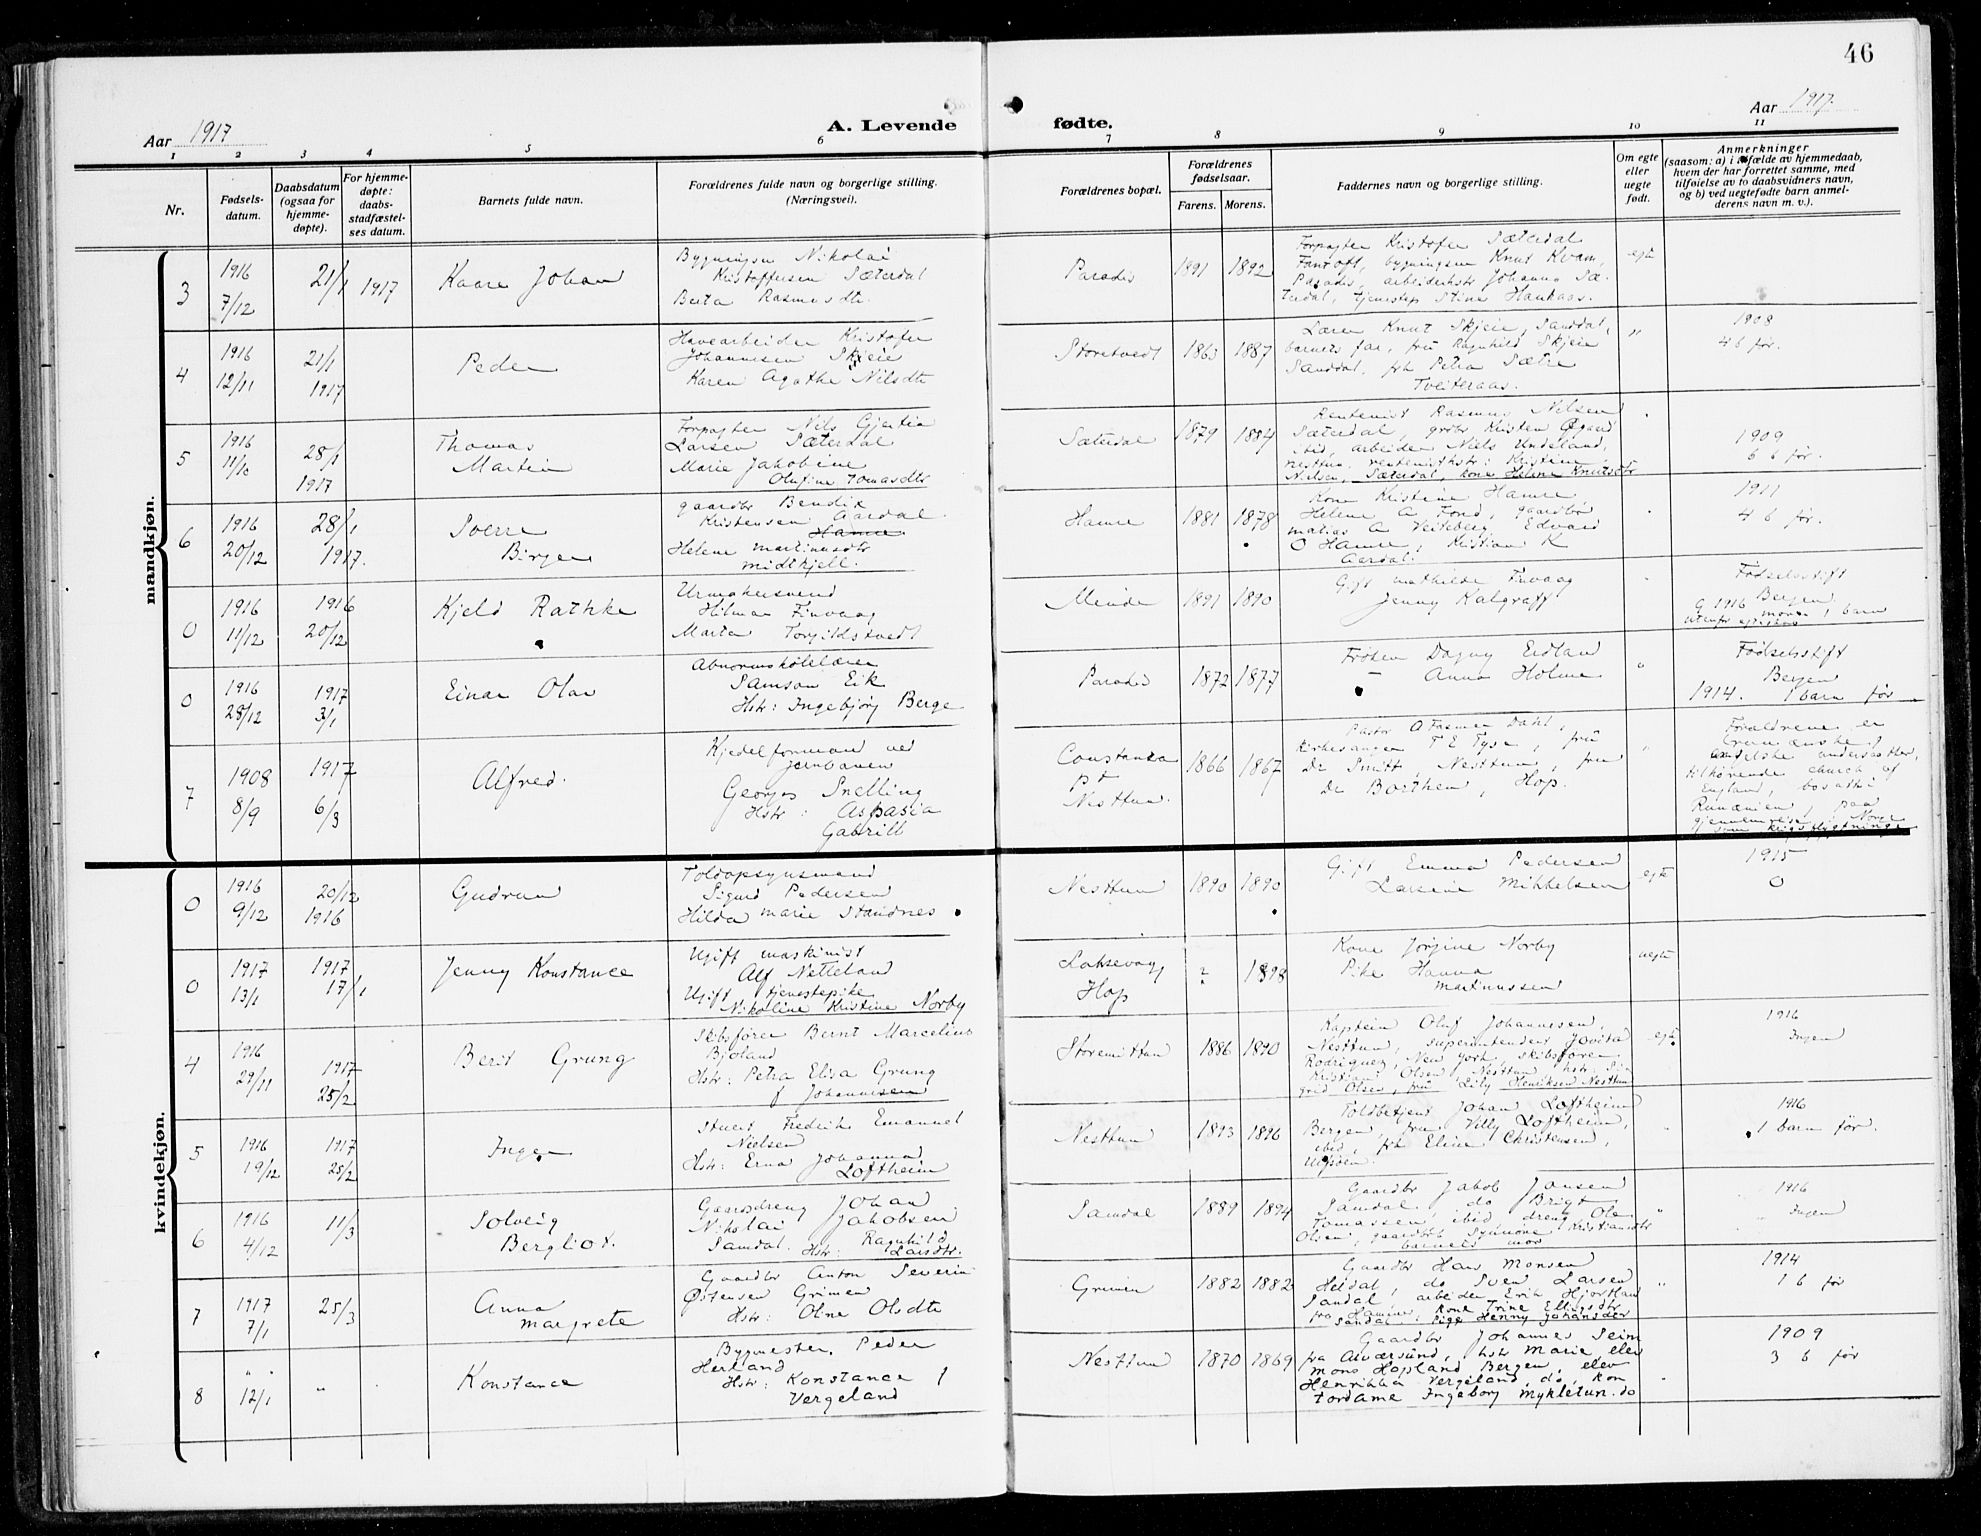 46
Aar 1917
A. Levende
fødte.
Aar 1917.
1 2 3 4 5 6 7 8 9 10 11
Nr.
Fødsels-
datum.
Daabsdatum
(ogsaa for
hjemme-
døpte).
For hjemme-
døpte:
daabs-
stadfæstel-
ses datum.
Barnets fulde navn.
Forældrenes fulde navn og borgerlige stilling.
(Næringsvei).
Forældrenes bopæl.
Forældrenes
fødselsaar.
Farens. Morens.
Faddernes navn og borgerlige stilling.
Om egte
eller
uegte
født.
Anmerkninger
(saasom: a) i tilfælde av hjemmedaab,
hvem der har forrettet samme, med
tilføielse av to daabsvidners navn,
og b) ved uegtefødte barn anmel-
derens navn m. v.).
mandkjøn.
3
1916
7/12
21/1 1917
Kaare Johan
Bygningsn Nikolai
Kristoffersen Sæterdal
Berta Rasmusdtr.
Paradis
1891 1892
Forpagter Kristofer Sæterdal
Fantoft, bygningsn Knut Kvam,
Paradis, arbeiderhstr Johanna Sæ-
terdal, tjenestep Stina Haukaas.
egte
4
1916
12/11
21/1
1917
Peder
Havearbeider Kristofer
Johannesen Skjeie
Karen Agathe Nilsdtr
Storetvedt
1863 1887
Lærer Knut Skjeie, Sanddal,
barnets far, fru Ragnhild Skjeie
Sanddal, frk Petra Sætre
Tveiteraas.
"
1908
4 b før.
5
1916
11/10
28/1
1917
Thomas
Martin
Forpagter Nils Gjertin
Larsen Sæterdal
Marie Jakobine
Olufine Tomasdtr
Sæterdal
1879 1884
Rentenist Rasmus Nilsen
Sæterdal, grdbr Kristen Øgaard
ibid, arbeider Niels Undeland,
Nesttun, rentenisthstr: Kristine
Nielsen, Sæterdal, kone Helene Knutsdtr
1909
6 b før.
6
1916
20/12
28/1
1917.
Sverre
Birger
gaardbr Bendik
Kristensen Aardal
Hamre
Helene Martinusdtr
Midtkjell.
Hamre
1881 1878
Kone Kristine Hamre,
Helene A Fond, gaardbr
Matias A Veiteberg, Edvard
O Hamre, Kristian K
Aardal.
1911
4 b før.
0
1916
11/12
1916
20/12
Kjeld Rathke
Urmakersvend
Hilmar Finvaag
Marta Torgildstvedt
Minde
1891 1890
Gift Mathilde Finvaag
Jenny Kalgraff
Fødselsstift
Bergen
G 1916 mor 1 barn
utenfr egteskab
0
1916
28/12
1917
3/1
Einar Olav
Abnormskolelærer
Samson Eik
Hstr: Ingebjörg Berge
Paradis
1872 1877
Frøken Dagny Eidland
— Anna Holme
"
Fødselsstift
Bergen
1914. 1 barn før
7
1908
8/9
1917
6/3
Alfred.
Kjedelformand ved
jernbanen
Georges Snelling
Hstr: Aspasia
Gabrill
Constanza
pt
Nesttun.
1866 1867
Pastor O Tasmer Dahl,
kirkesanger T E Tyse, fru
Dr Smitt, Nesttun, fru
Dr Borthen, Hop.
"
Forældrene er
engelske undersaatter,
tilhørende church of
England, bosatte i
Rumænien, paa
gjennemreise i Norge
som krigsflygtninge
kvindekjøn.
0
1916
9/12
20/12
1916
Gudrun
Toldopsynsmand
Sigurd Pedersen
Hilda Marie Standnes
Nesttun
1890 1890
Gift Emma Pedersen
Larsine Mikkelsen
egte
1915
0
0
1917
13/1
1917
17/1
Jenny Konstance
Ugift maskinist
Alf Netteland
Ugift tjenestepike
Nikoline Kristine Norby
Laksevaag
Hop
? 1898
Kone Jørgine Norby
Pike Hanna
Martinussen
uegte
4
1916
29/11
1917
25/2
Berit Grung
Skibsfører Bernt Marcelius
Bjoland
Hstr: Petra Elisa Grung
f Johannesen
Storemittun
1886 1890
Kaptein Oluf Johannesen,
Nesttun, superintendent Jovita
Rodriguez, New York, skibsfører
Kristian Olsen, Nesttun, hstr Si-
grid Olsen, fru Lily Henriksen Nesttun
egte
1916
Ingen
5
1916
19/12
1917
25/2
Inger
Stuert Fredrik Emanuel
Nielsen
Hstr: Erna Johanna
Loftheim
Nesttun
1893 1896
Toldbetjent Johan Loftheim
Bergen, fru Villy Loftheim,
ibid, frk Eline Christensen,
1916
1 barn før.
6
1916
4/12
11/3
Solveig
Bergliot.
Gaardsdreng Johan
Nikolai Jakobsen
Samdal. Hstr: Ragnhild
Larsdtr.
Samdal
1889 1894
Gaardbr Jakob Jansen
Samdal, do Brigt
Tomassen, ibid, dreng Ole
Olsen, gaardbrk Synnøve Kristiansdtr
barnets mor
"
1916
Ingen
7
1917
7/1
25/3
Anna
Margrete
Gaardbr Anton Severin
Østensen Grimen
Hstr: Oline Olsdtr
Grimen
1882 1882
Gaardbr Hans Monsen
Heldal, do Sven Larsen
Sandal, arbeider Erik Hjortland
fra Hamre, kone Trine Ellingsdtr
Sandal, Pige Henny Johansdtr
"
1914
1 b før
8
" "
12/1
"
Konstance
Bygmester, Peder
Herland
Hstr: Konstance f
Vergeland
Nesttun
1870 1869
Gaardbr Johannes Seim
fra Alversund, hstr Marie, elev
Mons Hopland Bergen, elev
Henrikka Vergeland, do, kon
tordame Ingeborg Mykletun. do
1909
3 b før